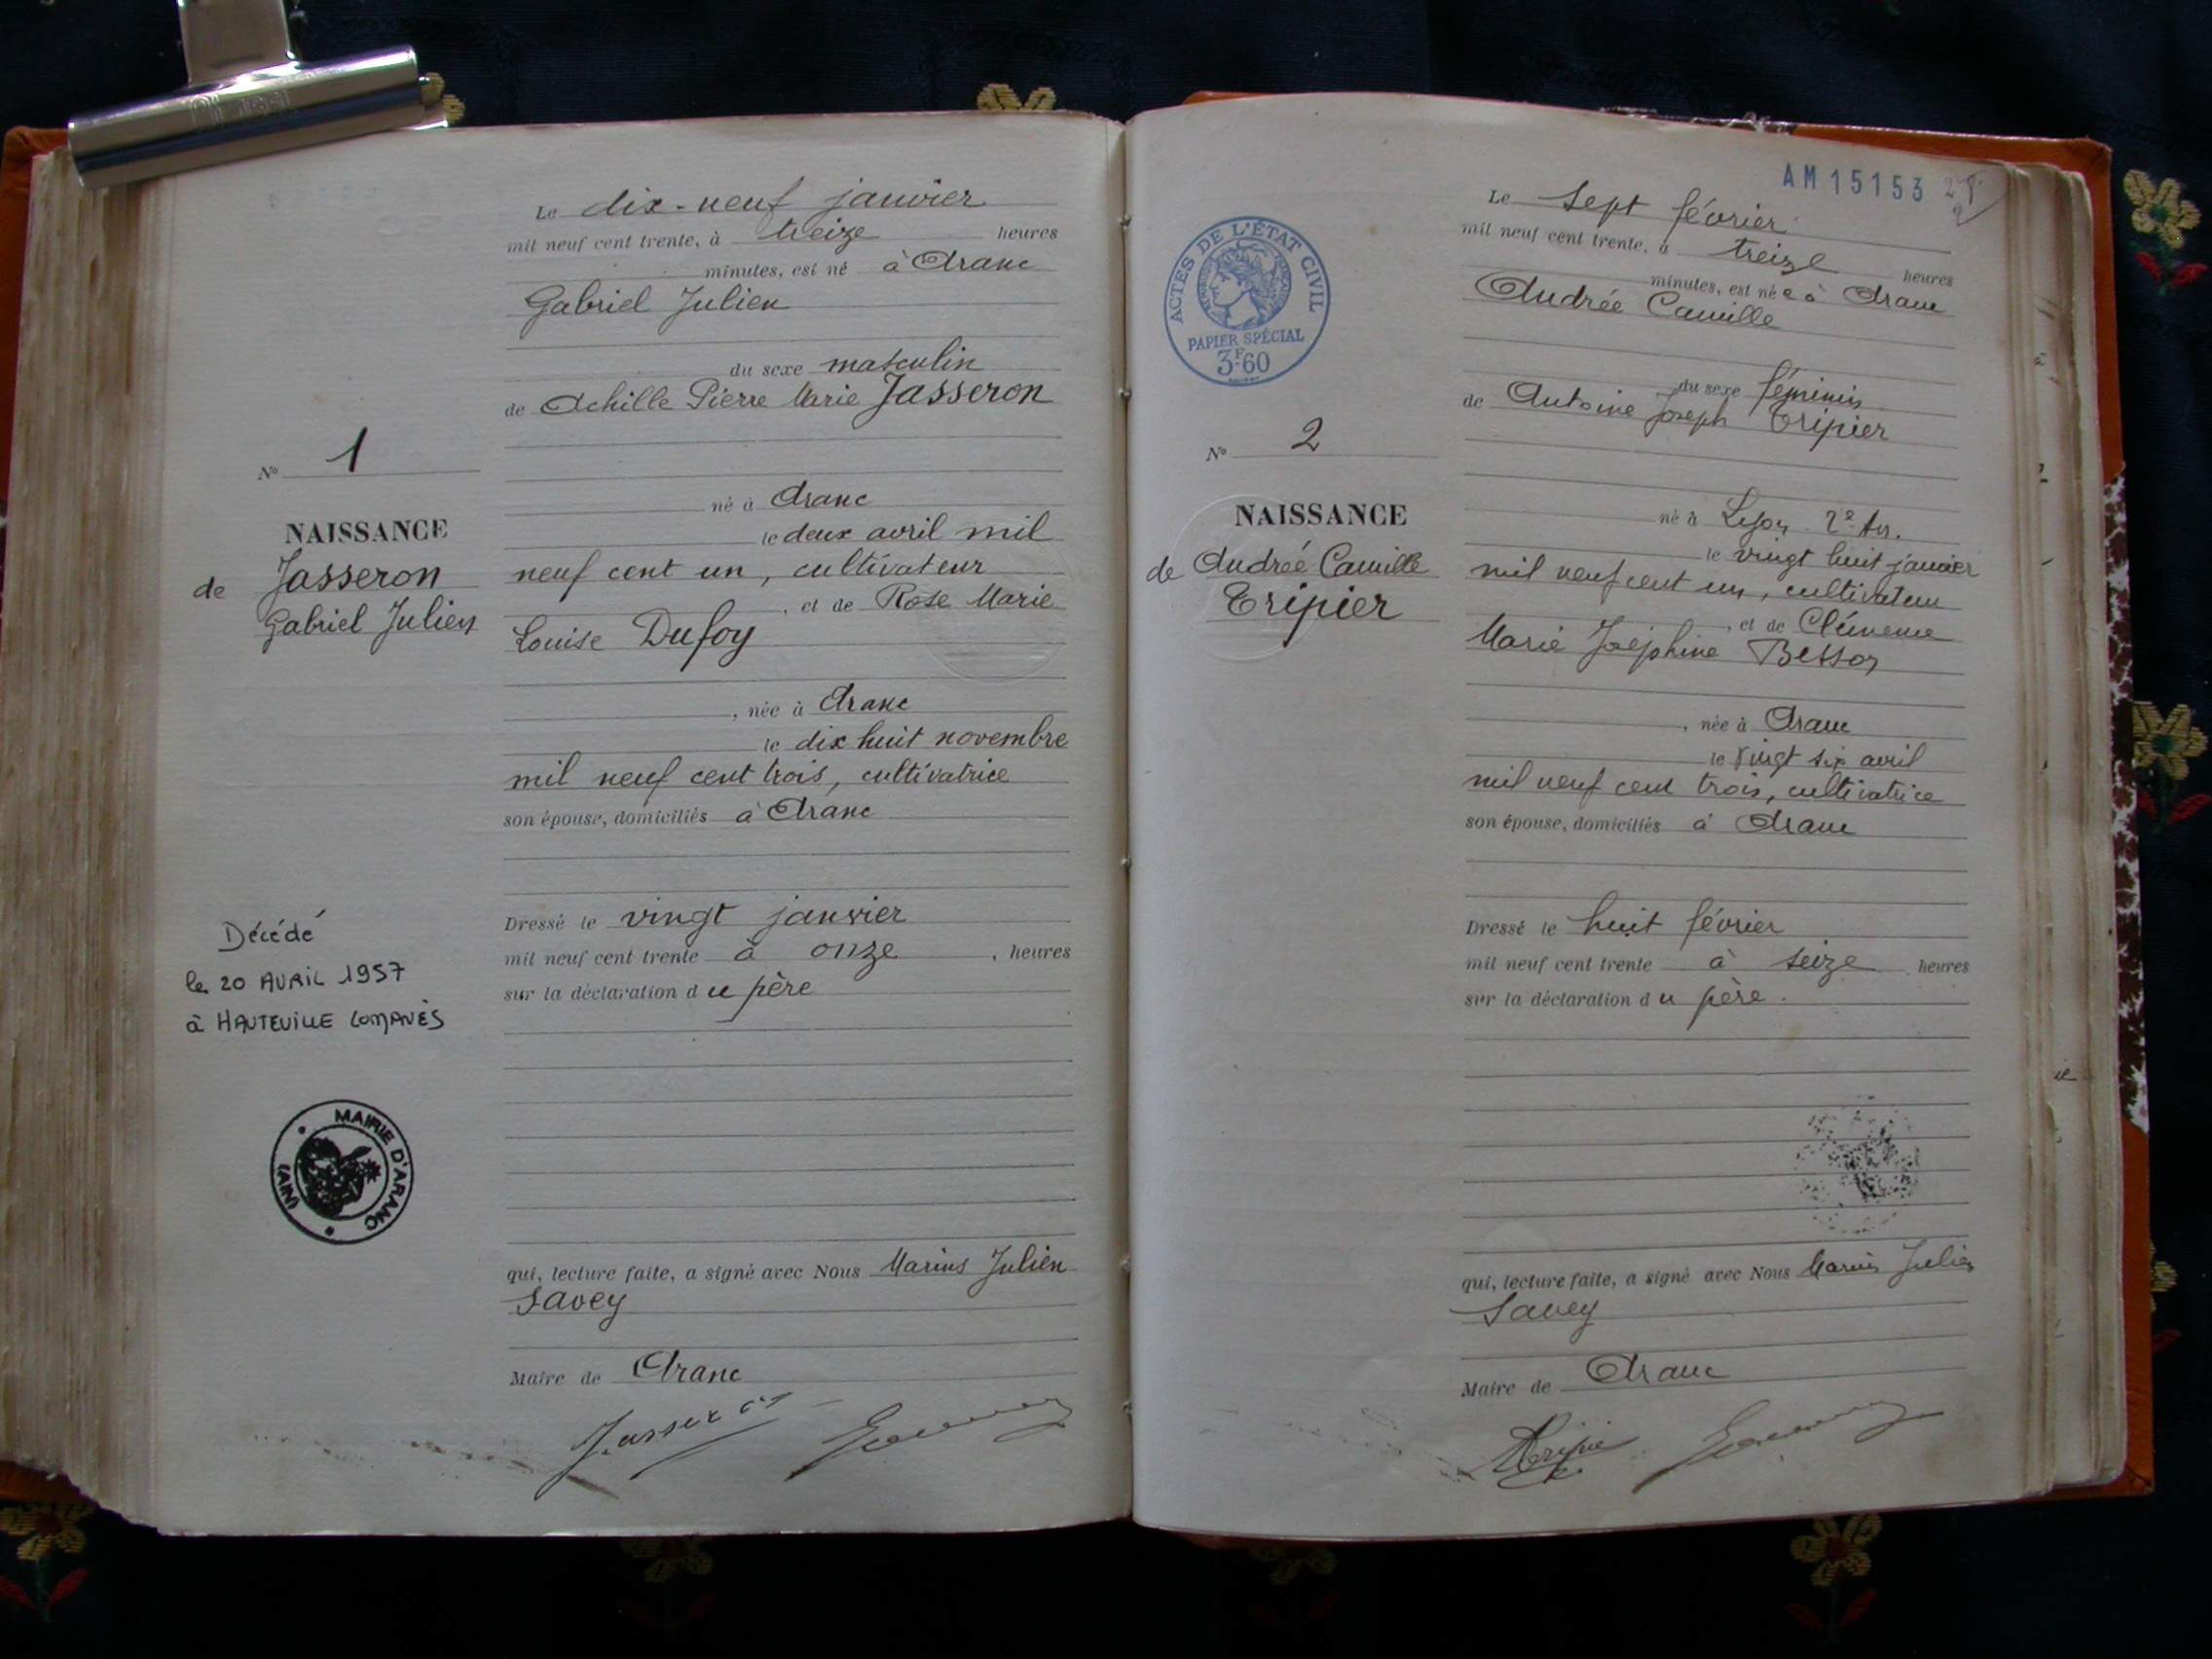 Le dix-neuf janvier
mil neuf cent trente, à treize heures
minutes, est né à Aranc
Gabriel Julien
du sexe masculin
de Achille Pierre Marie Jasseron
né à Aranc
le deux avril mil
neuf cent un, cultivateur
, et de Rose Marie
Louise Dufoy
, née à Aranc
le dix huit novembre
mil neuf cent trois, cultivatrice
son épouse, domiciliés à Aranc
Dressé le vingt janvier
mil neuf cent trente à onze , heures
sur la déclaration du père
qui, lecture faite, a signé avec Nous Marius Julien
Savey
Maire de Aranc
Jasseron
N° 1
NAISSANCE
de Jasseron
Gabriel Julien
Décédé
le 20 AVRIL 1957
à HAUTEVILLE LOMPNÈS
MAIRIE D'ARANC
(AIN)
AM15153
ACTES DE L'ÉTAT CIVIL
PAPIER SPÉCIAL
3F60
N° 2
NAISSANCE
de Andrée Camille
Tripier
Le sept février
mil neuf cent trente, à treize heures
minutes, est née à Aranc
Andrée Camille
du sexe féminin
de Antoine Joseph Tripier
né à Lyon 2e Arr.
le vingt huit janvier
mil neuf cent un, cultivateur
, et de Clémence
Marie Joséphine Besson
, née à Aranc
le vingt six avril
mil neuf cent trois, cultivatrice
son épouse, domiciliés à Aranc
Dressé le huit février
mil neuf cent trente à seize heures
sur la déclaration du père.
qui, lecture faite, a signé avec Nous Marius Julien
Savey
Maire de Aranc
Tripier